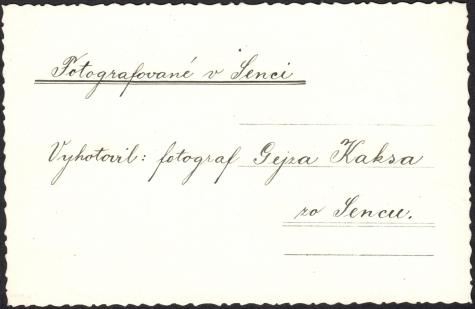 Fotografované v Senci
Vyhotovil: fotograf Gejza Kaksa
zo Sencu.